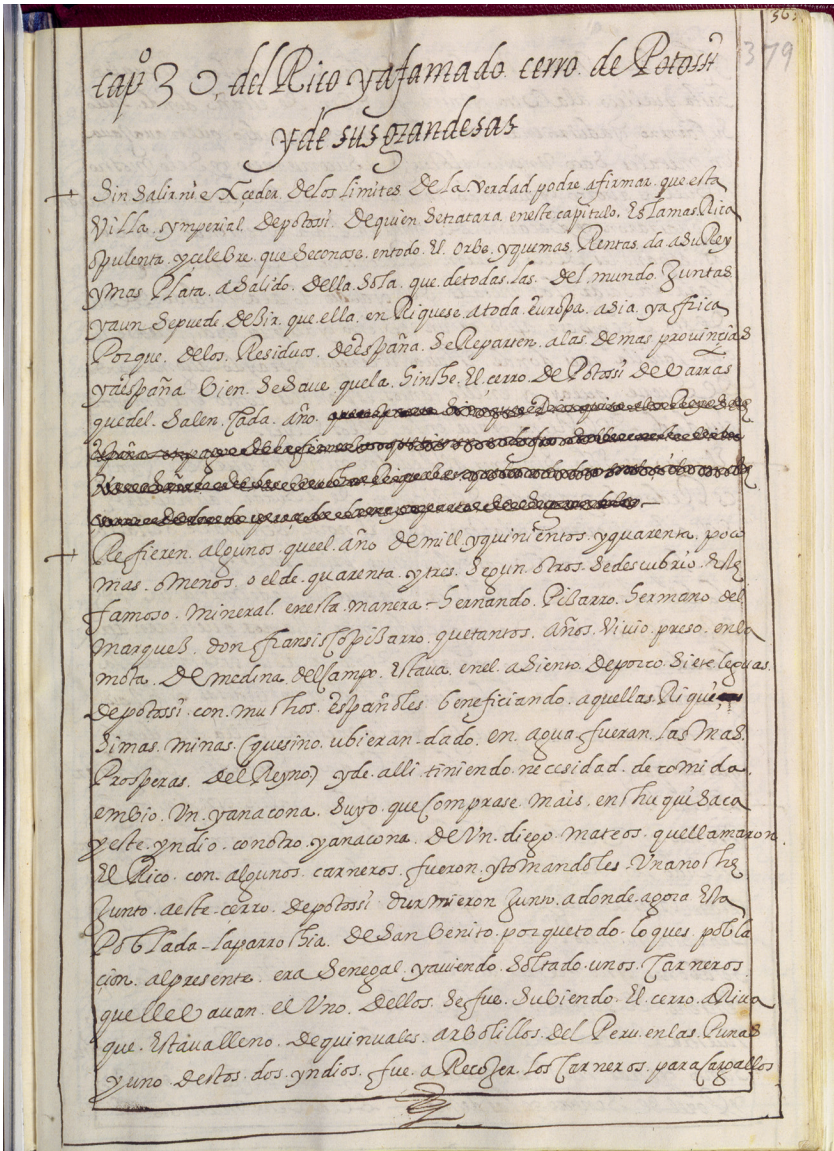 379
capº 30, del Rico y afamado. cerro. de Potossi
y de sus grandesas
Sin Salir ni eXçeder. de los limites de la verdad podre afirmar. que esta
Villa. ymperial. de potossi. de quien se tratara en este capitulo. Es la mas Rica
opulenta. y celebre. que se conose. en todo. El. orbe. y que mas. Rentas. da a Su Rey
y mas Plata. a Salido. della. Sola. que de todas. las. del mundo. Juntas
y aun Se puede. deBir. que ella. en Riquese. a toda. europa. asia. y africa
Porque. de los. Residuos. de españa. Se Reparten. a las. demas provinçias
y a españa. bien. Se Save que la. hinche. El. cerro. de Potossi de barras
que del. Salen. Cada. año.
Refieren. algunos. que el. año de mill. y quinientos. y quarenta. poco
mas. o menos. o el de. quarenta. y tres. Segun. otros. Se descubrio. este
famoso. mineral. en esta. manera - hernando. Pisarro. hermano del
marques. don fransisco pisarro. que tantos. años. vivio. preso. en la
mota. de medina. del Campo. Estava. en el. asiento. de porco. Siete leguas.
de potossi. con. muchos. españoles. beneficiando. aquellas. Riqui
Simas. minas. (que si no. ubieran. dado. en. agua. fueran. las mas.
Prosperas. del Reyno) y de. alli. tiniendo. necesidad. de comida.
embio. Un. yanacona. Suyo. que Comprase. mais. en Chuquisaca
y este. yndio. con otro. yanacona. de Un. diego. mateos. que llamaron.
El Rico. con. algunos. carneros. fueron. y tomandoles. Una noche
Junto. a este. cerro. de potossi. durmieron Junto. a donde. agora Esta
PoBlada - la parrochia. de San benito. porque todo. lo ques. pobla
cion. al presente. era Senegal. y aviendo. Soltado. unos. Carneros.
que llevavan. el Uno. dellos. Se fue. Subiendo. El. cerro. aRiva
que. Estava lleno. de quinuales. arbolillos. del Peru. en las. Punas
y uno. destos. dos. yndios. fue. a Recojer. los Carneros. para Cargallos